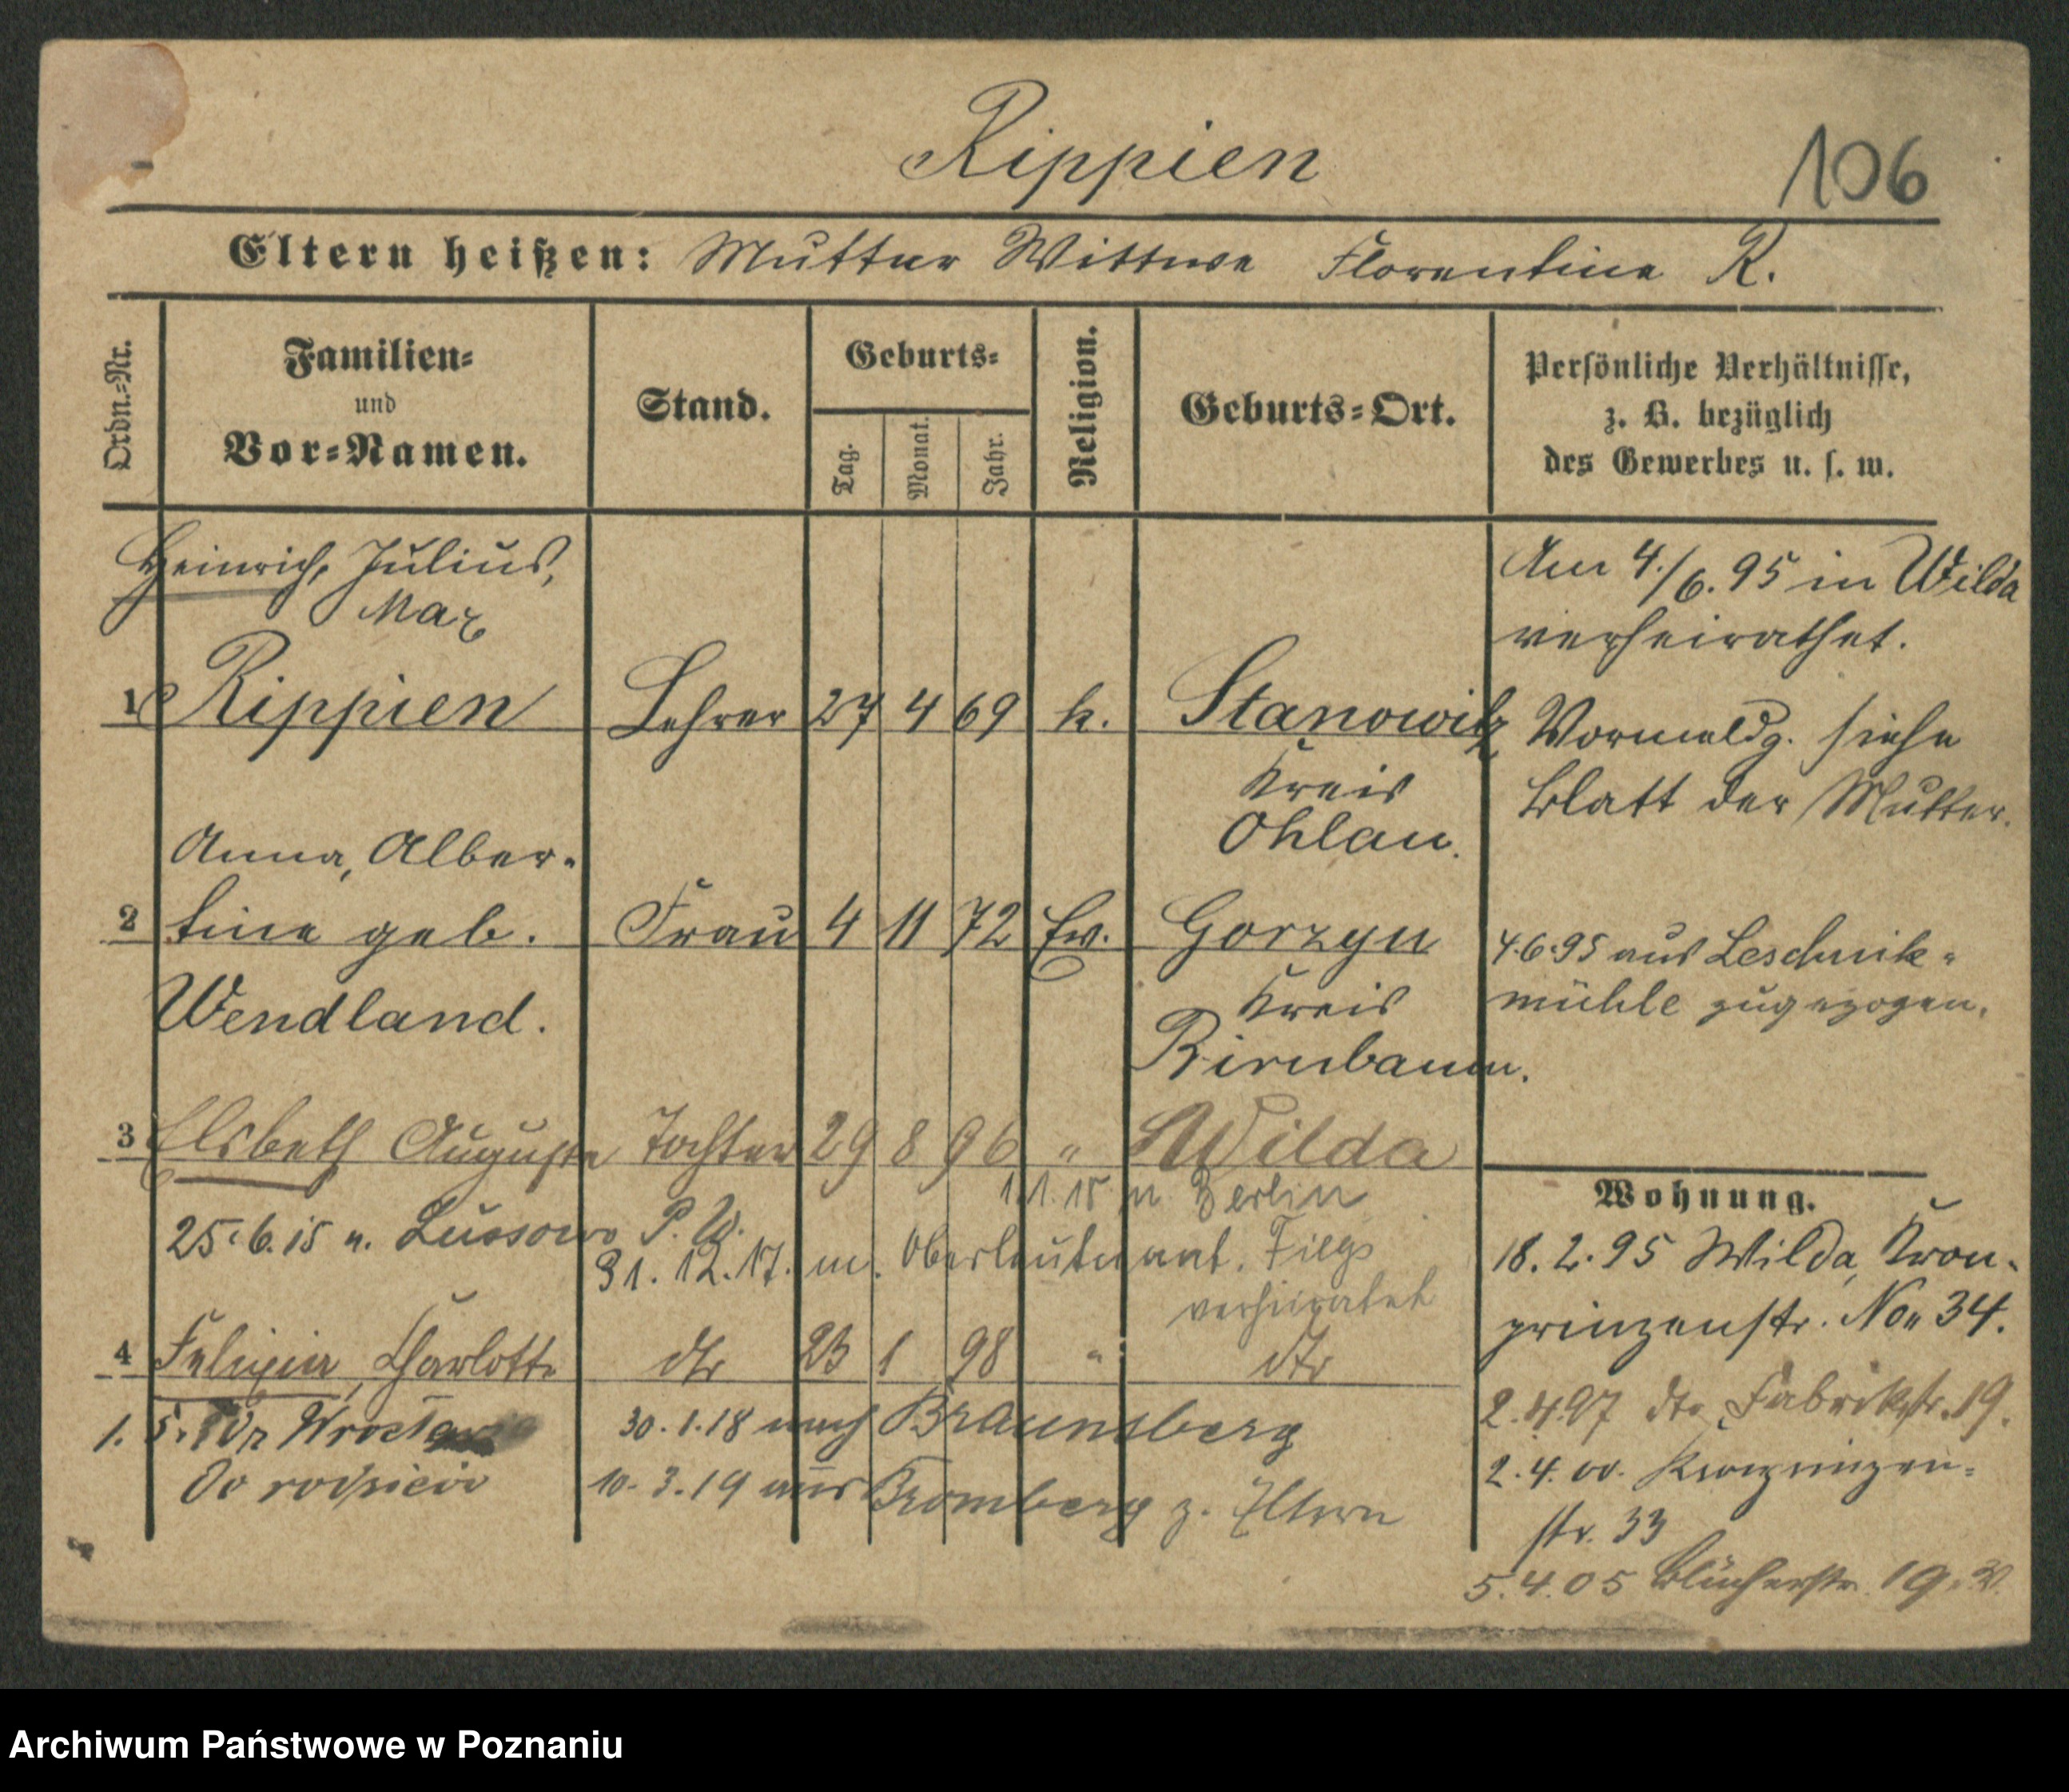 Rippien
106
Eltern heißen: Mutter Wittwe Florentine R.
Ordn.-Nr.
Familien-
und
Vor-Namen.
Stand.
Geburts-
Tag.
Monat.
Jahr.
Religion.
Geburts-Ort.
Persönliche Verhältnisse,
z. B. bezüglich
des Gewerbes u. s. w.
Heinrich, Julius,
Max
1 Rippien Lehrer 27 4 69 k. Stanowitz
Kreis
Ohlau.
Am 4./6. 95 in Wilda
verheirathet.
Vormeldg. siehe
Blatt der Mutter.
Anna, Alber-
2 tine geb. Frau 4 11 72 Ev. Gorzyn
Wendland.
Kreis
Birnbaum.
4.6.95 aus Leschnik-
mühle zugezogen.
3 Elsbeth Auguste Tochter 29 8 96 " Wilda
1.1.15 n Berlin
25.6.15 n. Lussowo P. W.
31.12.17. m. Oberleutnant
verheiratet
4 Felizia, Charlotte dto 23 1 98 " dto
30.1.18 nach Braunsberg
10.3.19 aus Bromberg z. Eltern
Wohnung.
18.2.95 Wilda, Kron-
prinzenstr. No 34.
2.4.97 dto Fabrikstr. 19.
2.4.00. Kronprinzen-
str. 33
5.4.05 Blücherstr. 19
Archiwum Państwowe w Poznaniu